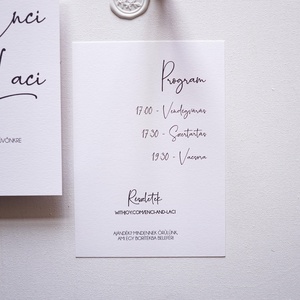 Enci
Laci
Program
17:00 - Vendégvárás
17:30 - Szertartás
19:30 - Vacsora
Részletek
WITHJOY.COM/ENCI-AND-LACI
AJÁNDÉK? MINDENNEK ÖRÜLÜNK,
AMI EGY BORÍTÉKBA BELEFÉR!